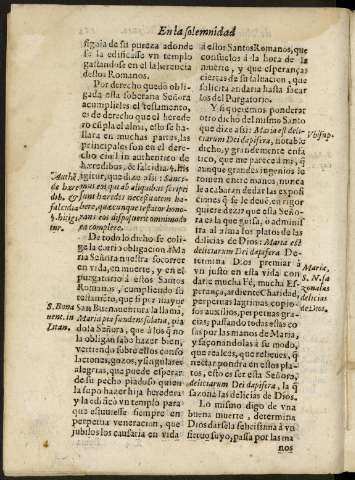 En la solemnidad
signia de su pureza adonde
se la edificasse vn templo
gastandose en el la herencia
destos Romanos.
Por derecho quedò obli-
gada esta soberana Señora
acumplirles el testamento,
es de derecho que el herede
ro cũpla el alma, esto se ha-
llara en muchas partes, las
principales son en el dere-
cho ciuil in authentico de
heredibus, & falcidia, §. Hi
igitur, que dize assi: Sanci-
mus eos, qui ab aliquibus scripti
sunt heredes
bere, quæcunque testator hono-
rans eos disposuerit omnimodo
ea complere.
De todo lo dicho se coli-
ge la carta obligacion à Ma
ria Señora nuestra socorrer
en vida, en muerte, y en el
purgatorio à estos Santos
Romanos, cumpliendo su
testamēto, que si por mayor
San Buenauentura la llama,
Maria piæ fundens solatia, pia
dosa Señora, que à los q̃ no
la obligan sabe hazer bien,
vertiendo sobre ellos conso
laciones, gozos, y singulares
alegrias, que puede esperar
de su pecho piadoso quien
la supo hazer hija heredera
y la edificò vn templo para
que estuuiesse siempre en
perpetua veneracion, que
jubilos los causaria en vida
S. Bona
uent. in
Litan.
à estos Santos Romanos, que
consuelos à la hora de la
muerte, y que esperanças
ciertas de su saluacion, que
solicita andaria hasta sacar
los del Purgatorio.
Y si queremos ponderar
otro dicho del mismo Santo
que dize assi: Maria est deli-
tiarum Dei dapifera, notable
dicho, y grandemente enfa
tico, que me parece à mi, q̃
aunque grandes ingenios le
tomen entre manos, nunca
le acabaran de dar las exposi
ciones q̃ se le deuē, en rigor
quiere dezir que esta Seño-
ra es la que guisa, ò adminis
tra al alma los platos de las
delicias de Dios: Maria est
delitiarum Dei dapifera. De-
termina Dios premiar à
vn justo en esta vida con
darle mucha Fé, mucha Es-
perança, ardiente Charidad,
perpetuas lagrimas, copio-
sos auxilios, perpetuas gra-
cias; passando todas estas co
sas por las manos de Maria,
y saçonandolas à su modo,
que realces, que relieues, q̃
nectar pondrà en estos pla-
tos, esto es ser esta Señora,
delitiarum Dei dapifera, la q̃
saçona las delicias de Dios.
Lo mismo digo de vna
buena muerte, determina
Dios darsela felicissima à vn
sieruo suyo, passa por las ma
nos
Vbi sup.
Maria,
S. N. sa
zona las
delicias
de Dios.